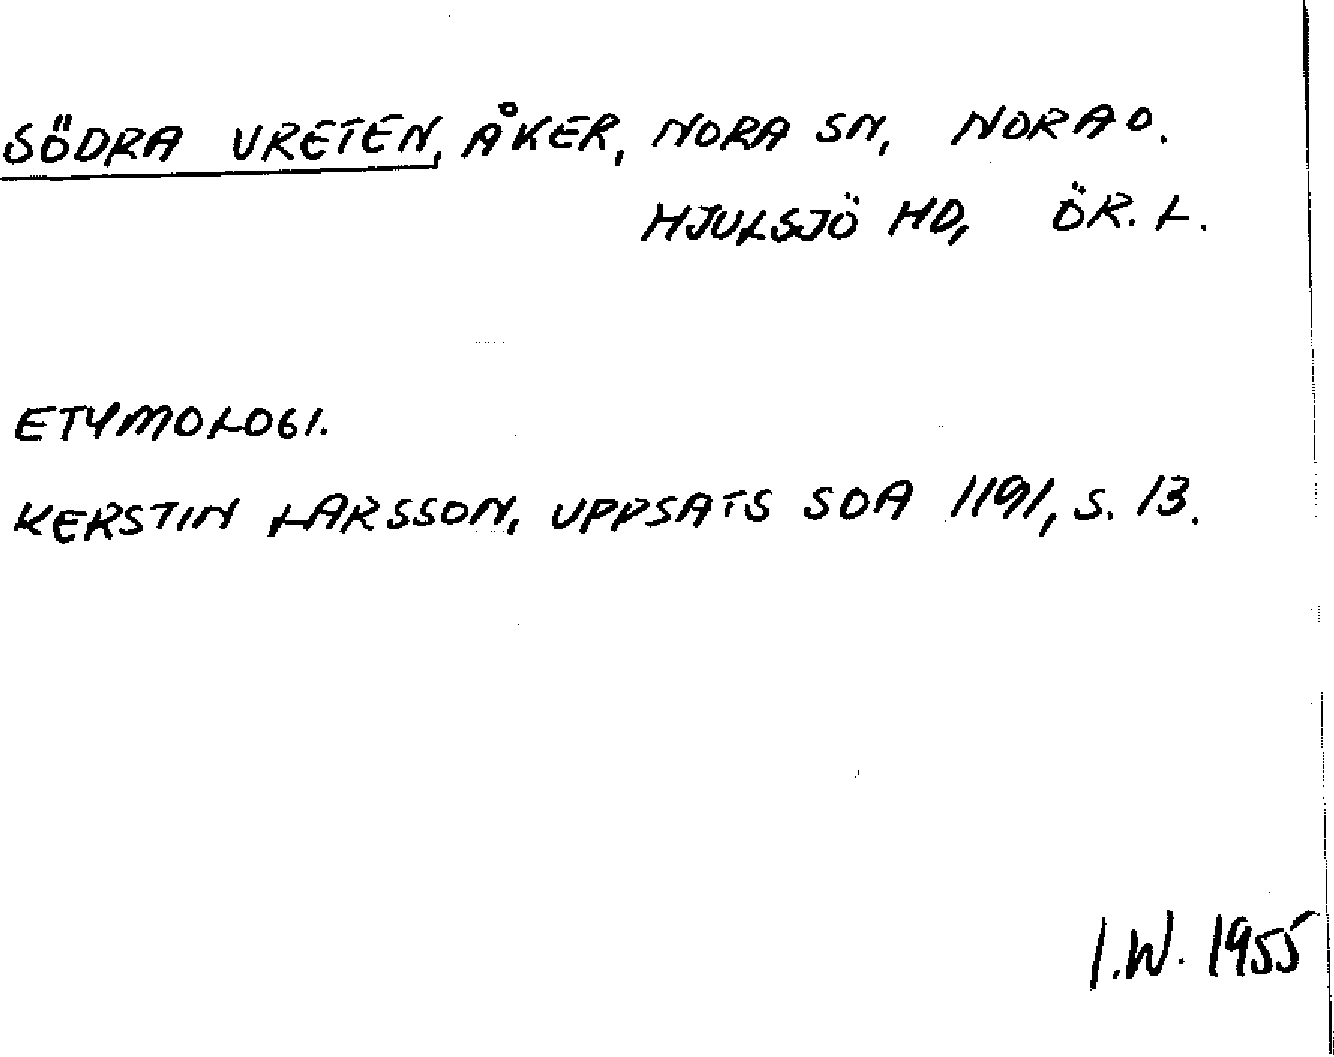 SÖDRA VRETEN, ÅKER, NORA SN, NORA O.
HJULSJÖ HD, ÖR. L.
ETYMOLOGI.
KERSTIN LARSSON, UPPSATS SOA 1191, S. 13.
I.W. 1955